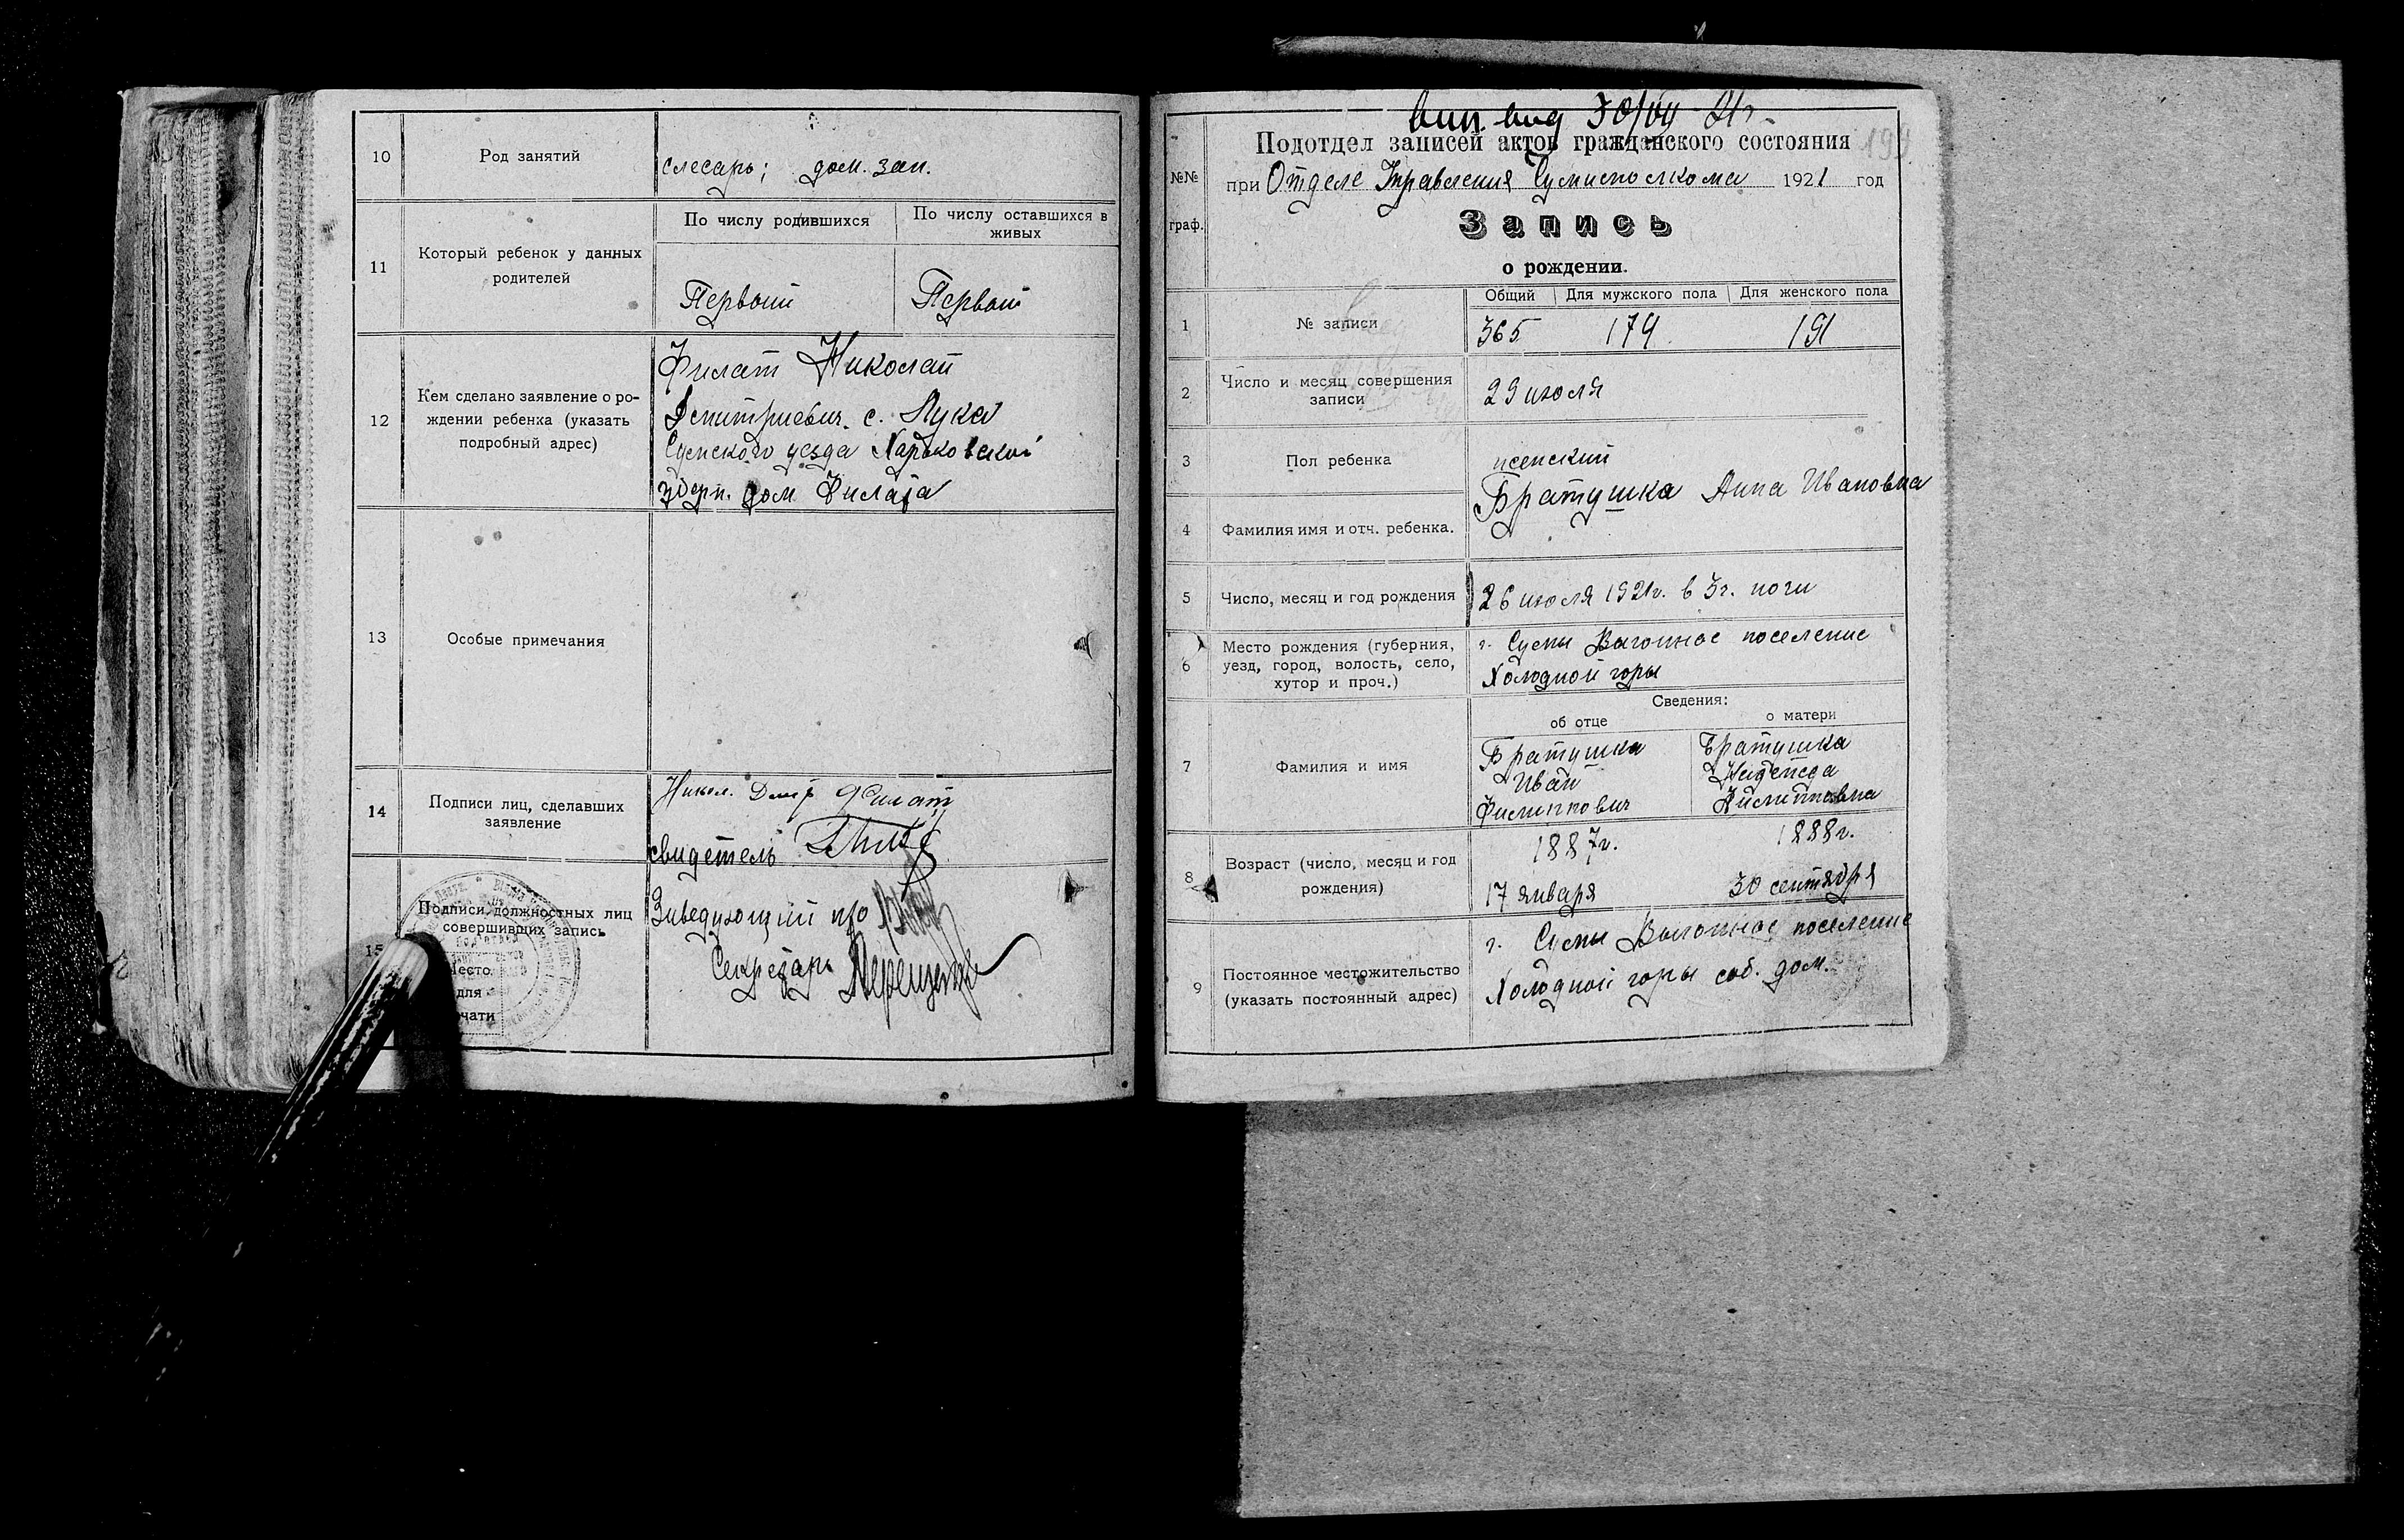 10 Род занятий слесарь; дом. зан.
11 Который ребенок у данных родителей
По числу родившихся По числу оставшихся в живых
Первый Первый
12 Кем сделано заявление о ро-
ждении ребенка (указать
подробный адрес)
Филат Николай
Дмитриевич. с. Лука
Сумского уезда Харьковской
губерн. дом Филата
13 Особые примечания
14 Подписи лиц, сделавших
заявление
Никол. Дмтр Филат
свидетель
15 Подписи должностных лиц
совершивших запись
Заведующий п/о
Секретарь
Место
для
чати
вып. вид 30/VII 21г.
199
Подотдел записей актов гражданского состояния
№№ граф.
при Отделе Управления Сумисполкома 1921 год
Запись
о рождении.
Общий Для мужского пола Для женского пола
1 № записи 365 174 191
2 Число и месяц совершения
записи
29 июля
3 Пол ребенка женский
4 Фамилия имя и отч. ребенка. Братушка Анна Ивановна
5 Число, месяц и год рождения 26 июля 1921г. в 3г. ночи
6 Место рождения (губерния,
уезд, город, волость, село,
хутор и проч.)
г. Сумы Выгонное поселение
Холодной горы
Сведения:
об отце о матери
7 Фамилия и имя
Братушка Братушка
Иван Надежда
Филиппович Филипповна
8 Возраст (число, месяц и год
рождения)
1887г. 1888г.
17 января 30 сентября
9 Постоянное местожительство
(указать постоянный адрес)
г. Сумы Выгонное поселение
Холодной горы соб. дом.